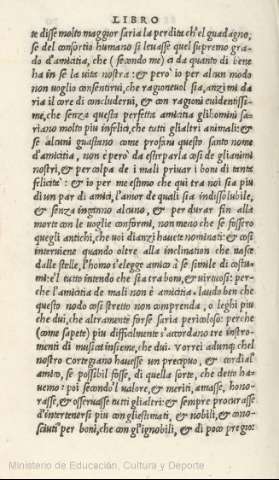 LIBRO
te disse molto maggior saria la perdita ch'el guadagno;
se del consortio humano si leuasse quel supremo gra-
do d'amicitia, che (secondo me) ci da quanto di bene
ha in se la uita nostra: & però io per alcun modo
non uoglio consentirui, che ragioneuol sia, anzi mi da
ria il core di concluderui, & con ragioni euidentissi-
me, che senza questa perfetta amicitia gli homini sa-
riano molto piu infelici, che tutti gli altri animali: &
se alcuni guastano come profani questo santo nome
d'amicitia, non è però da estirparla cosi de gli animi
nostri, & per colpa de i mali priuar i boni di tanta
felicità: & io per me estimo che qui tra noi sia piu
di un par di amici, l'amor de quali sia indissolubile,
& senza inganno alcuno, & per durar fin alla
morte con le uoglie conformi, non meno che se fossero
quegli antichi, che uoi dianzi hauete nominati: & cosi
interuiene quando oltre alla inclination che nasce
dalle stelle, l'homo s'elegge amico à se simile di costu-
mi: e'l tutto intendo che sia tra boni, & uirtuosi: per
che l'amicitia de mali non è amicitia. laudo ben che
questo nodo cosi stretto non comprenda, o leghi piu
che dui, che altramente forse saria pericoloso: perche
(come sapete) piu difficilmente s'accordano tre instro-
menti di musica insieme, che dui. Vorrei adunq; che'l
nostro Cortegiano hauesse un precipuo, & cordial
amico, se possibil fosse, di quella sorte, che detto ha-
uemo: poi secondo'l ualore, & meriti, amasse, hono-
rasse, & osseruasse tutti gli altri: & sempre procurasse
d'intertenersi piu con gli estimati, & nobili, & cono-
sciuti per boni, che con gl'ignobili, & di poco pregio:
Ministerio de Educación, Cultura y Deporte